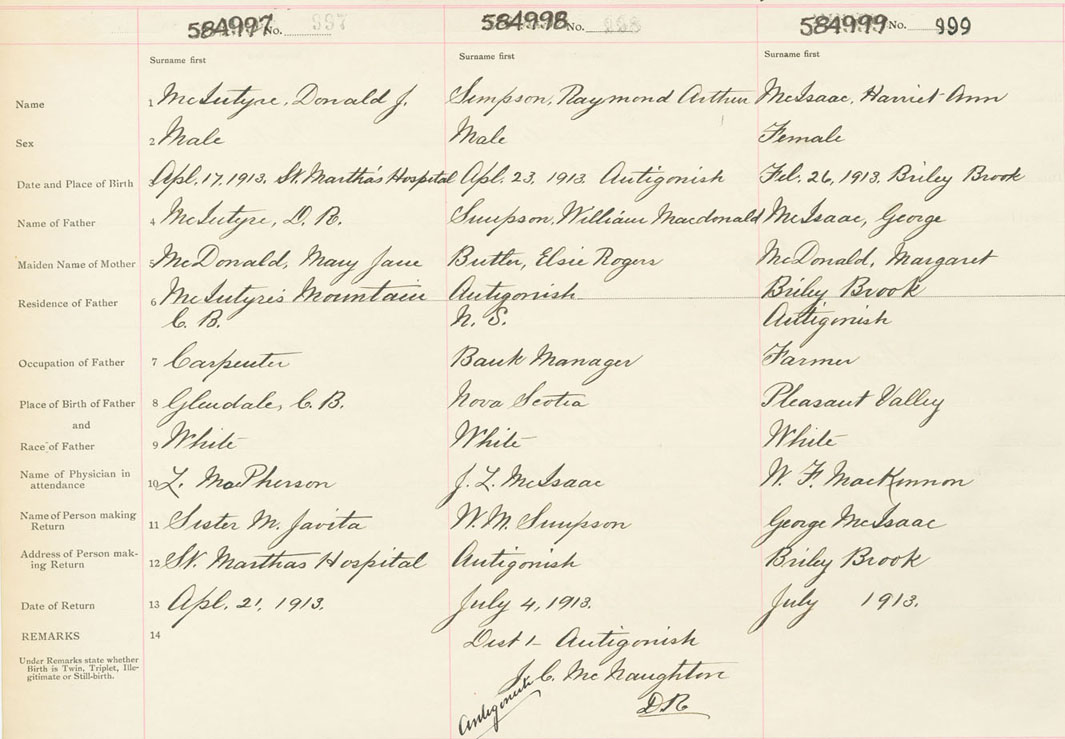 584997 No. 997 584998 No. 584999 No. 999
Surname first Surname first Surname first
Name 1 McIntyre, Donald J. Simpson, Raymond Arthur McIsaac, Harriet Ann
Sex 2 Male Male Female
Date and Place of Birth 3 Apl. 17, 1913. St. Martha's Hospital Apl. 23, 1913 Antigonish Feb. 26, 1913. Briley Brook
Name of Father 4 McIntyre, D. R. Simpson, William Macdonald McIsaac, George
Maiden Name of Mother 5 McDonald, Mary Jane Butler, Elsie Rogers McDonald, Margaret
Residence of Father 6 McIntyre's Mountain Antigonish Briley Brook
C. B. N. S. Antigonish
Occupation of Father 7 Carpenter Bank Manager Farmer
Place of Birth of Father 8 Glendale, C. B. Nova Scotia Pleasant Valley
and
Race of Father 9 White White White
Name of Physician in
attendance 10 L. MacPherson J. L. McIsaac W. F. MacKinnon
Name of Person making
Return 11 Sister M. Javita W. M. Simpson George McIsaac
Address of Person mak-
ing Return 12 St. Marthas Hospital Antigonish Briley Brook
Date of Return 13 Apl. 21, 1913. July 4, 1913. July 1913.
REMARKS 14 Dist 1 - Antigonish
Under Remarks state whether
Birth is Twin, Triplet, Ille-
gitimate or Still-birth.
J. C. McNaughton
Antigonish D.R